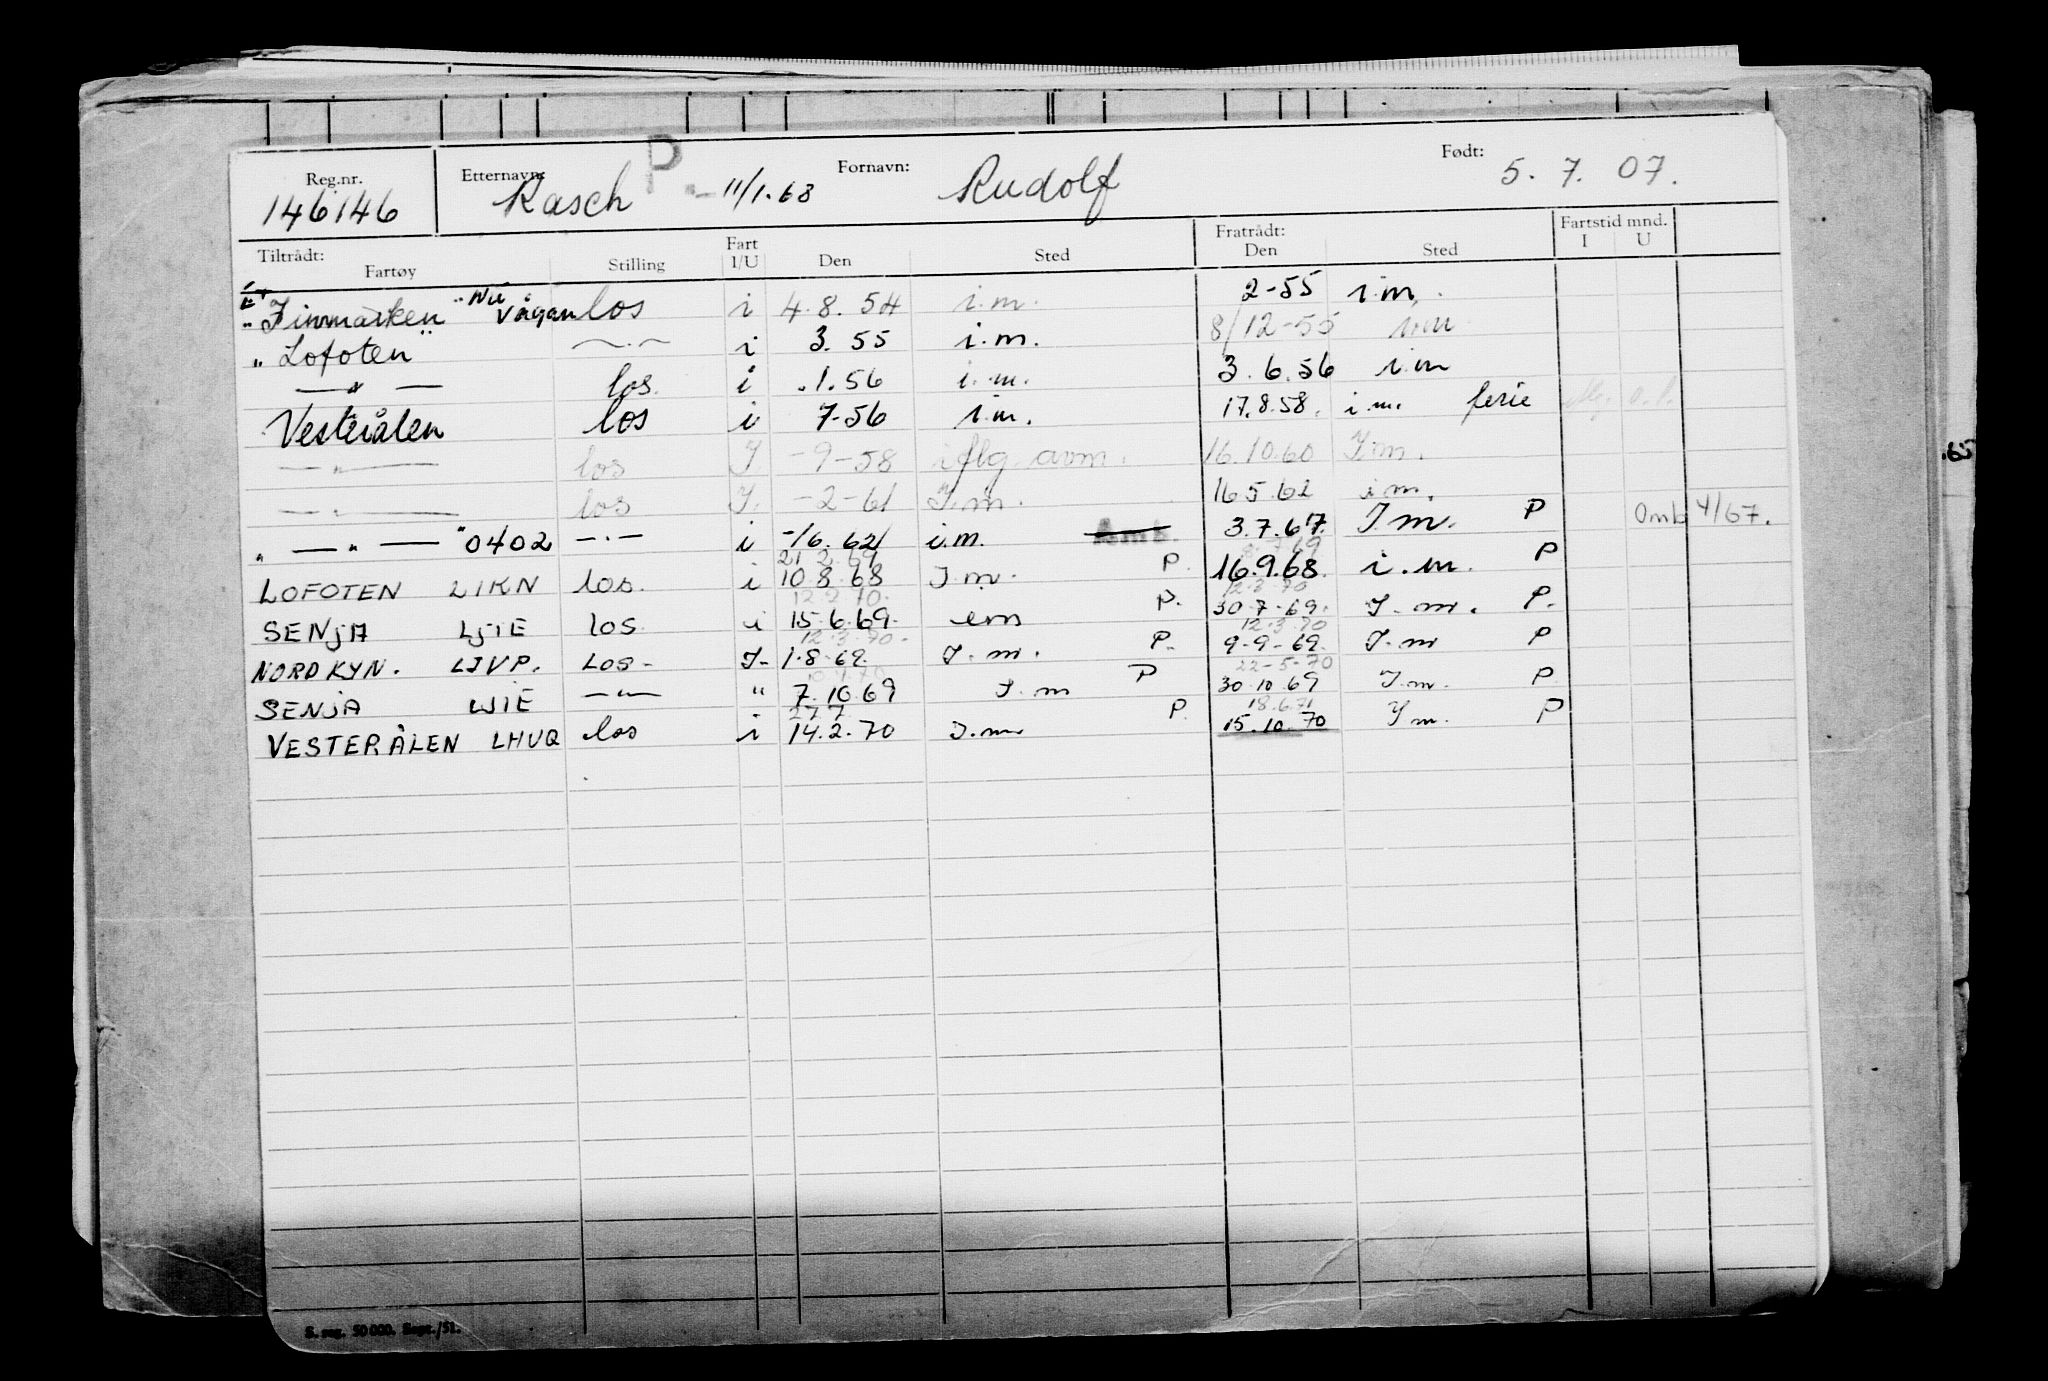 Reg.nr. Etternavn: P. Fornavn: Født:
146146 Rasch - 11/1.68 Rudolf 5. 7. 07.
Tiltrådt: Fart Fratrådt: Fartstid mnd.
Fartøy Stilling I/U Den Sted Den Sted I U
"Finnmarken" Nu Vågan los i 4.8.54 i.m. 2-55 i.m.
"Lofoten" — . — i 3.55 i.m. 8/12-55 i.m
— " — los. i .1.56 i.m. 3.6.56 i.m
Vesterålen los i 7-56 i.m. 17.8.58. i.m. ferie
— " — los I. -9-58 iflg. avm. 16.10.60 I.m.
— " — los I. -2-61 I.m. 16 5.62 i.m.
" — " — " 0402 — . — i -/6.62 i.m. 3.7.67. I m. P Omb 4/67.
21 2 69
LOFOTEN LIKN los. i 10 8.68 I m. P. 16.9.68. i.m. P
12 2 70. 12.3.70
SENJA LJIE los. i 15.6.69. em P. 30-7-69. I. m. P.
12.3.70. 12.3.70
NORDKYN. LJVP. Los- I- 1.8.69. I.m. P. 9-9-69. I.m P
22-5-70
SENJA LJIE — " — " 7.10.69 I.m P 30.10.69 I.m. P
27 7 18.6.71
VESTERÅLEN LHUQ los i 14.2.70 I.m P. 15.10.70 I m. P
.65
S. reg. 50 000. Sept./51.